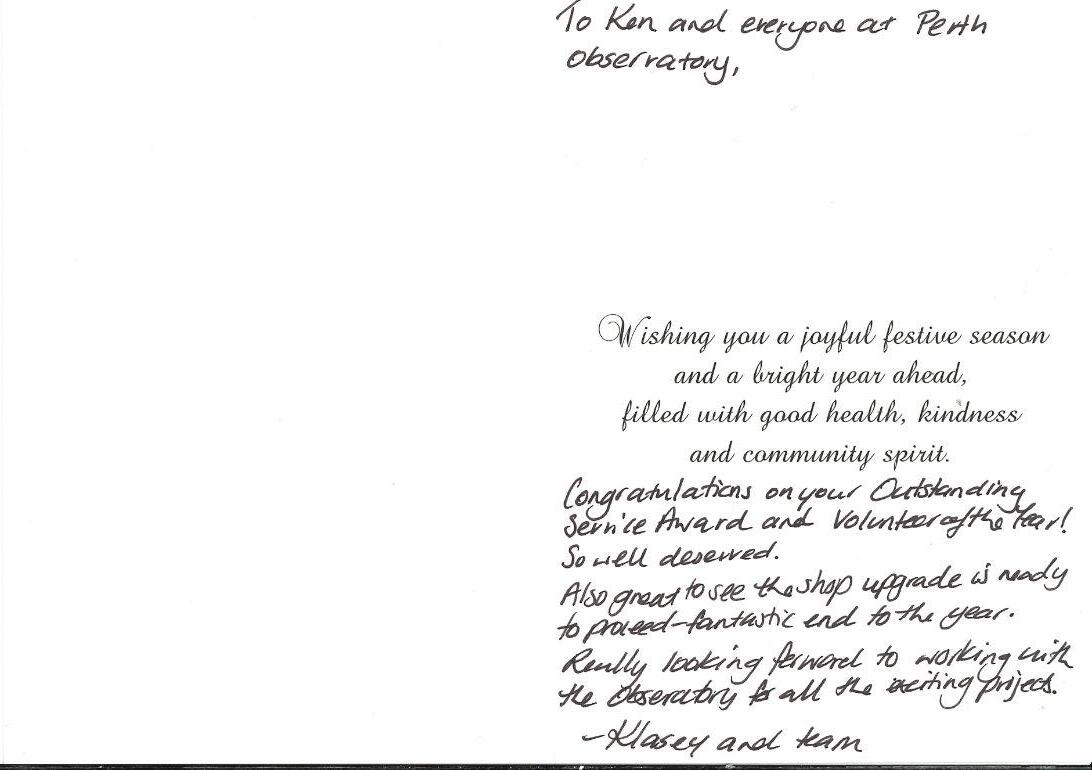 To Ken and everyone at Perth
Observatory,
Wishing you a joyful festive season
and a bright year ahead,
filled with good health, kindness
and community spirit.
Congratulations on your Outstanding
Service Award and Volunteer of the Year!
So well deserved.
Also great to see the shop upgrade is ready
to proceed - fantastic end to the year.
Really looking forward to working with
the Observatory for all the exciting projects.
- Klasey and team